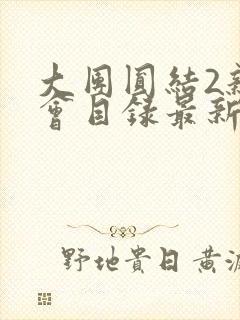 大團圓結2新
會目錄最新
野地貴日黄源